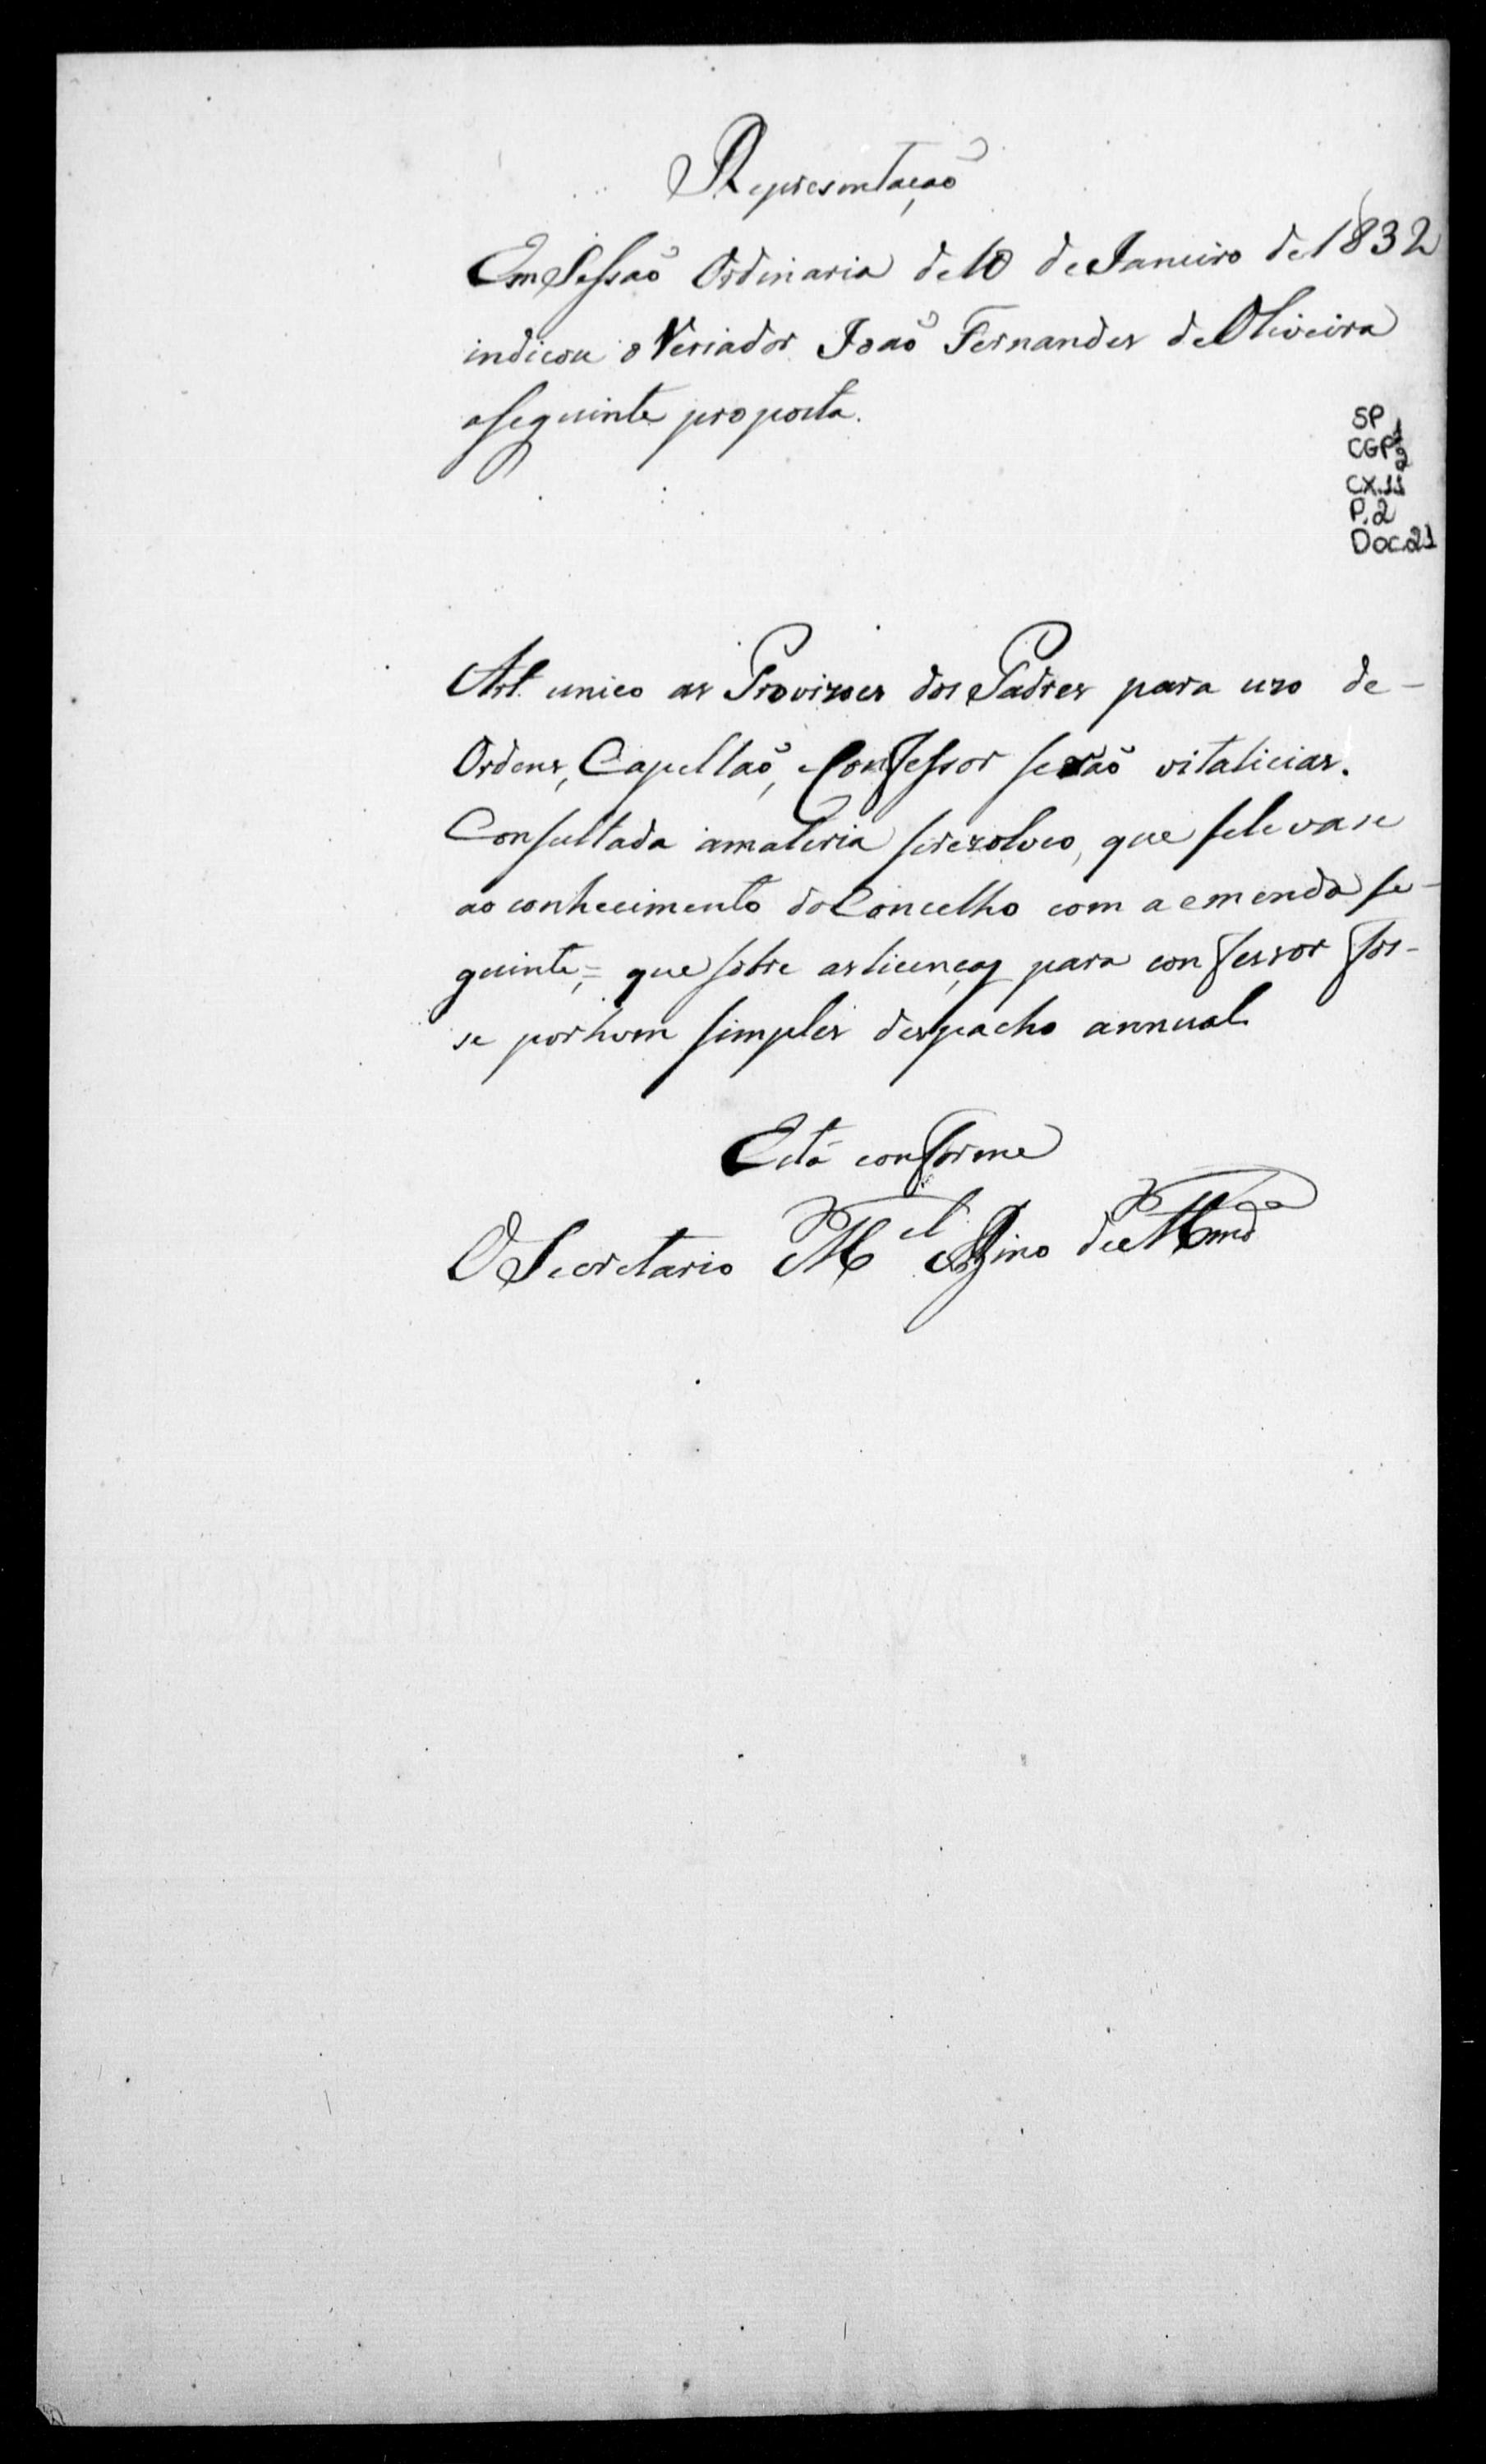 Representação
Em Sessaõ Ordinaria de 10 de Janeiro de 1832
indicou o Veriador Joaõ Fernandes de Oliveira
a seguinte proposta.
SP
CGP1
2
CX.11
P.2
Doc.21
Art. unico as Provizoes dos Padres para uzo de-
Ordens, Capellaõ, e Confessor seraõ vitalicias.
Consultada amateria serezolveo, que selevase
ao conhecimento do Concelho com a emenda se-
guinte,= que sobre as licenças para confessor fos-
se por hum simples despacho annual.
Está conforme
O Secretario M.el de